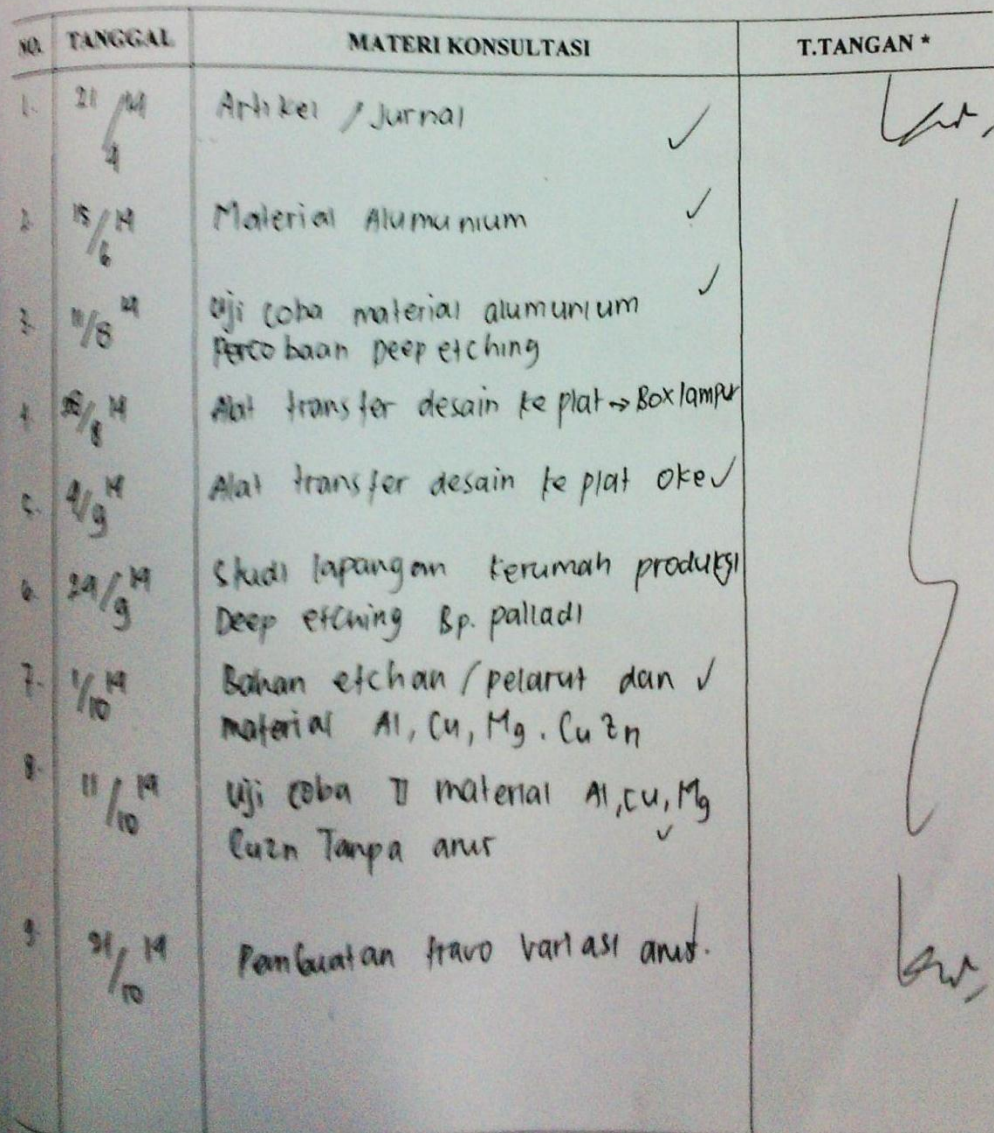 NO. TANGGAL MATERI KONSULTASI T.TANGAN *
1. 21/4 14 Artikel / Jurnal ✓
2. 15/6 14 Material Alumunium ✓
3. 11/8 14 Uji coba material alumunium ✓
Percobaan Deep etching
4. /8 14 Alat transfer desain ke plat → Box lampu
5. 4/9 14 Alat transfer desain ke plat oke ✓
6. 24/9 14 Studi lapangan kerumah produksi
Deep etching Bp. palladi
7. 1/10 14 Bahan etchan / pelarut dan ✓
material Al, Cu, Mg. Cu Zn
8. 11/10 14 Uji coba II material Al, Cu, Mg
Cuzn Tanpa arus ✓
9. /10 14 Pembuatan travo variasi arus.